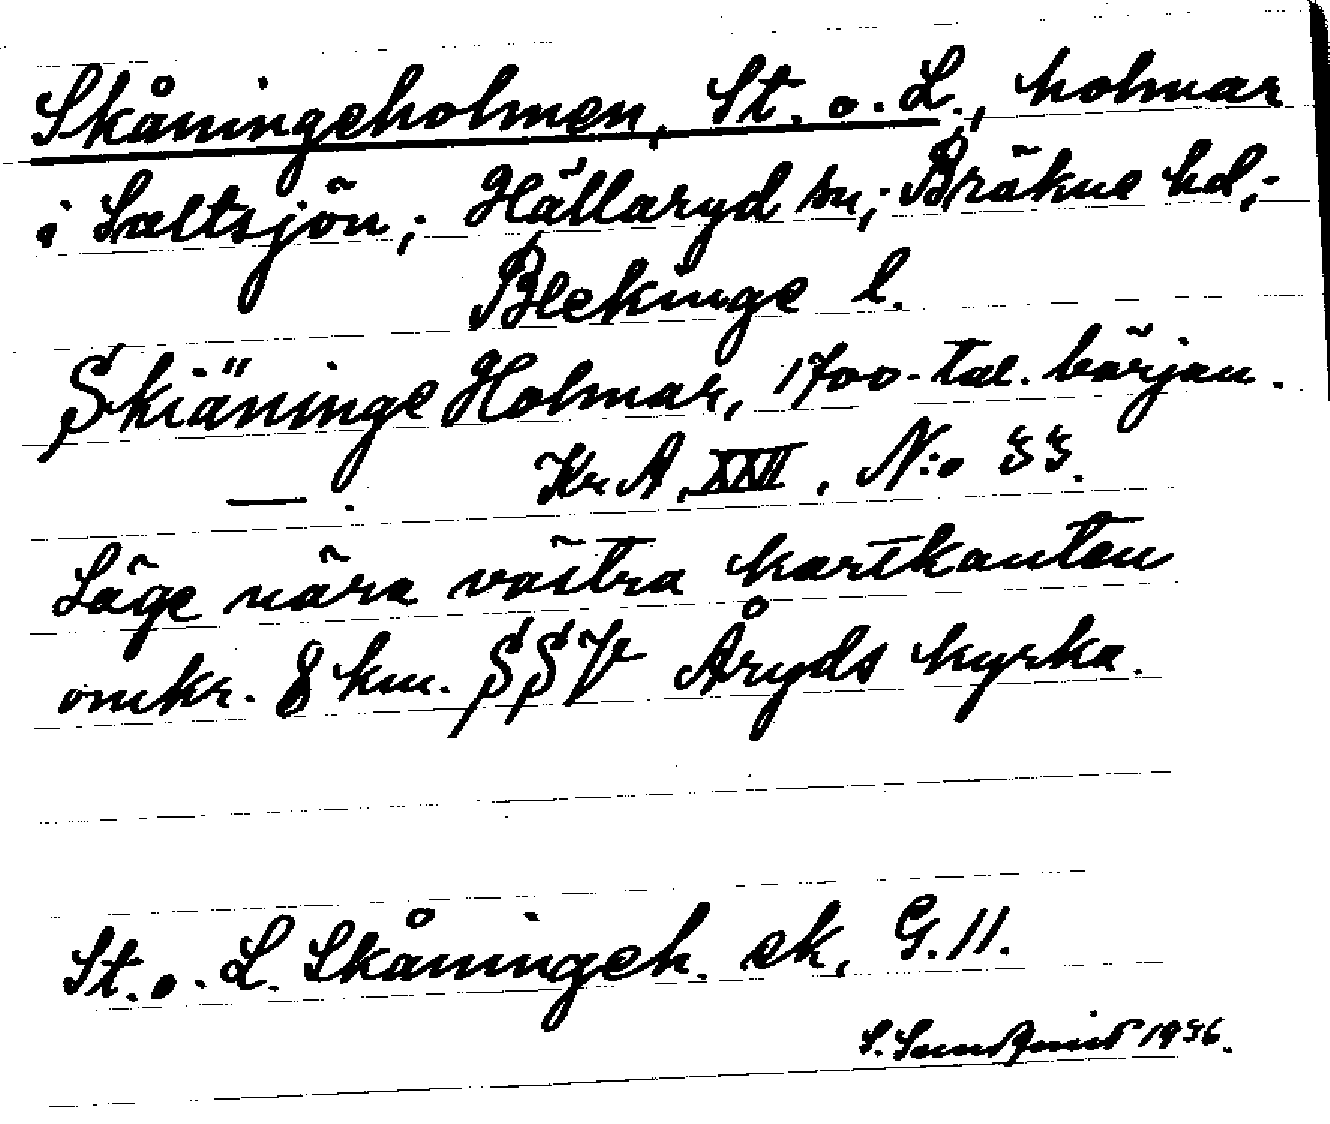 Skåningeholmen, St. o. L., holmar
i Saltsjön; Hällaryd sn; Bräkne hd;
Blekinge l.
Skiäninge Holmar, 1700-tal. början.
— . Kr. A, XXII, N:o 33.
Läge nära västra kartkanten
omkr. 8 km. SSV Åryds kyrka.
St. o. L. Skåningeh. ek, G. 11.
S. 1936.